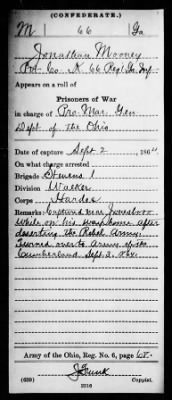 (CONFEDERATE.)
M 66 Ga
Jonathan Mooney
Pvt Co K 66 Regt Ga Inf
Appears on a roll of
Prisoners of War
in charge of Pro. Mar. Gen
Dept of the Ohio
Date of capture Sept 2, 186
On what charge arrested
Brigade Stevens 1
Division Walker
Corps Hardee
Remarks: Captured near Jonesboro
while on his way home after
deserting the Rebel Army.
Turned over to Army of the
Cumberland Sept. 3, 1864.
Army of the Ohio, Reg. No. 6, page
(639) Copyist.